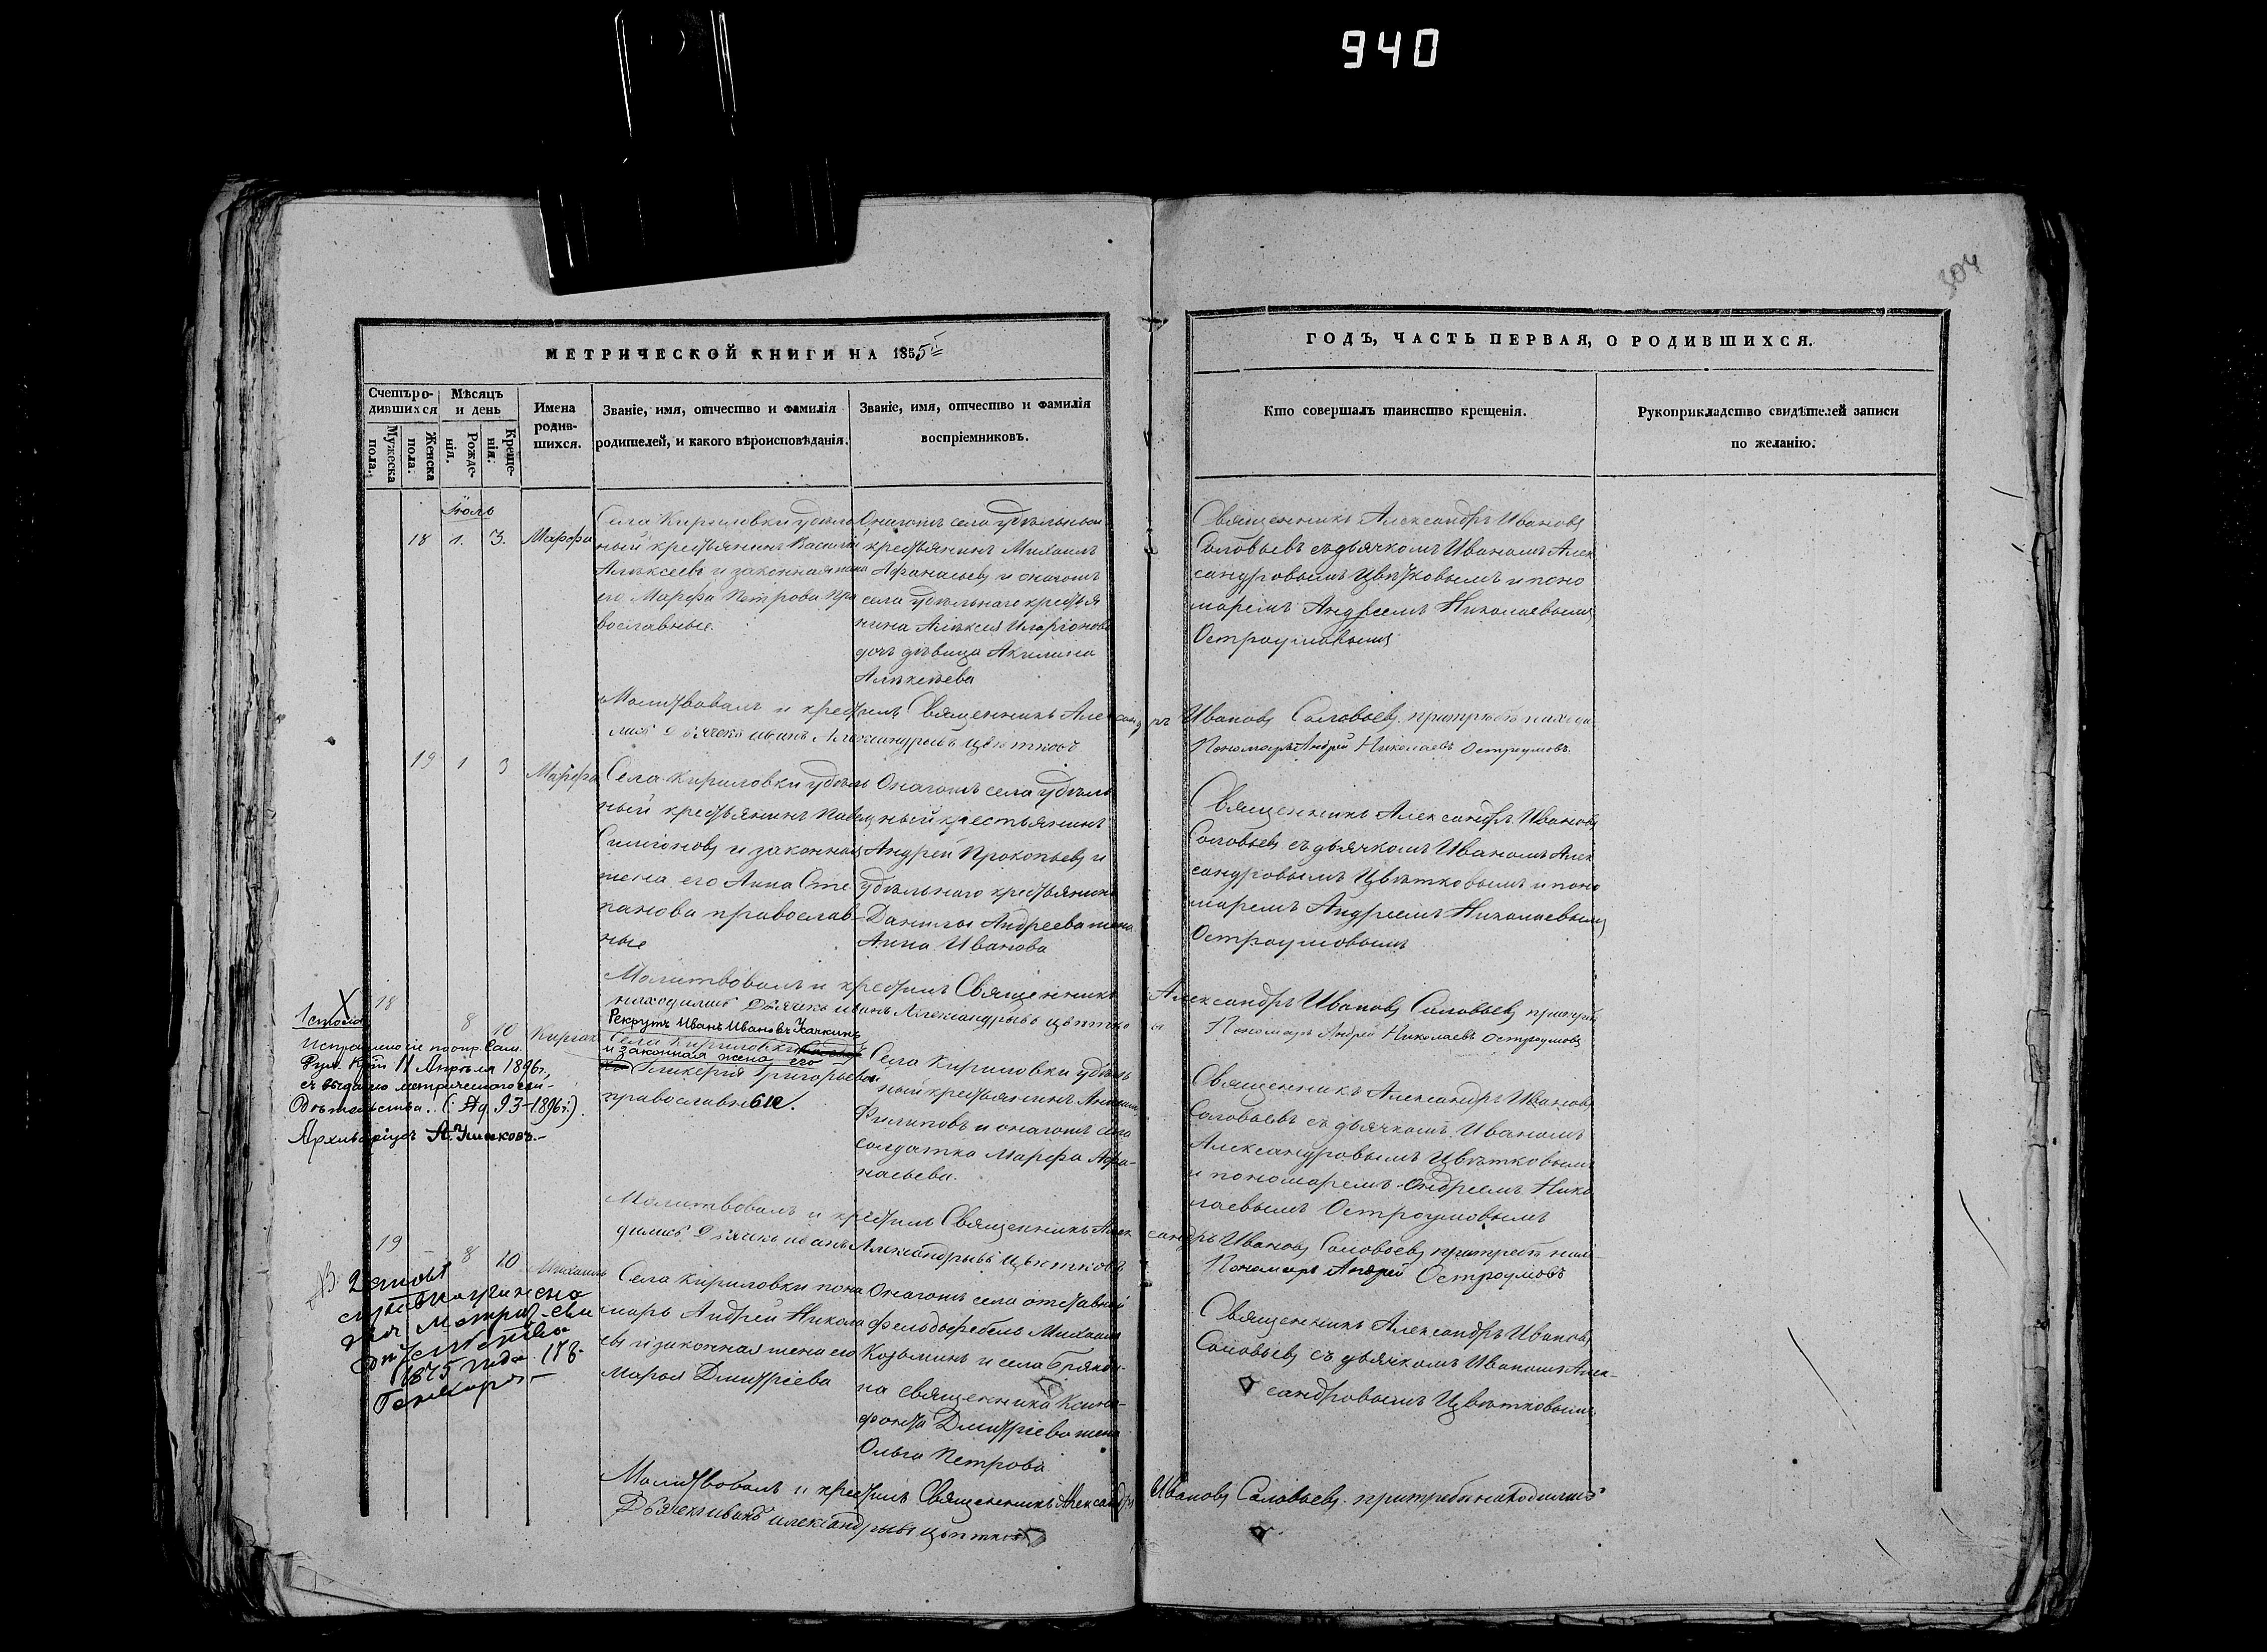 940
304
МЕТРИЧЕСКОЙ КНИГИ НА 1855й
Счетъ ро-
дившихся
Мѣсяцъ
и день
Мужеска
пола.
Женска
пола.
Рожде-
нія.
Креще-
нія.
Имена
родив-
шихся.
Званіе, имя, отчество и фамилія
родителей, и какого вѣроисповѣданія.
Званіе, имя, отчество и фамилія
воспріемниковъ.
ГОДЪ, ЧАСТЬ ПЕРВАЯ, О РОДИВШИХСЯ.
Кто совершалъ таинство крещенія.
Рукоприкладство свидѣтелей записи
по желанію.
Іюль
18 1. 3. Марѳа
Села Кириловки удѣль
ный крестьянинъ Василій
Алексеевъ и законная жена
его Марѳа Петрова пра
вославные.
Онагожъ села удѣльный
крестьянинъ Михаилъ
Афанасьевъ и онагожъ
села удѣльнаго крестья
нина Алексея Иларіонова
дочь дѣвица Акилина
Алексѣева
Священникъ Александръ Ивановъ
Соловьевъ съ дьячкомъ Иваномъ Алек
сандровымъ Цвѣтковымъ и поно
маремъ Андреемъ Николаевымъ
Остроумовымъ
Молитвовалъ и крестилъ Священникъ Александръ Ивановъ Соловьевъ. притребѣ находи-
лись Дьячекъ иванъ Александрывъ цвѣтковъ Пономарь Андрей Николаевъ Остроумовъ.
19 1 3 Марѳа
Села Кириловки удѣль
ный крестьянинъ Павелъ
Симіоновъ и законная
жена его Анна Сте
панова православ
ные
Онагожъ села удѣль
ный крестьянинъ
Андрей Прокопьевъ и
удѣльнаго крестьянина
Данилы Андреева жена
Анна Иванова
Священникъ Александръ Ивановъ
Соловьевъ съ дьячкомъ Иваномъ Алек
сандровымъ Цвѣтковымъ и поно
маремъ Андреемъ Николаевымъ
Остроумовымъ
Молитвовалъ и крестилъ Священникъ Александръ Ивановъ Соловьевъ притребѣ
находились Дьячекъ иванъ Александрывъ цвѣтковъ Пономарь Андрей Николаевъ Остроумовъ
18 8 10 Киріакъ
Исправлено по опр. Сам.
11 Апрѣля 1896г.,
съ выдачею метрическаго сви-
дѣтельства. (№ 93-1896г.)
Архиваріусъ А. Ушаковъ.-
Рекрутъ Иванъ Ивановъ Хапкинъ
Села Кириловки
и законная жена его
Гликерія Григорьева
православные.
Села Кириловки удѣль
ный крестьянинъ
Филиповъ и онагожъ села
солдатка Марѳа Афа-
насьева.
Священникъ Александръ Ивановъ
Соловьевъ съ дьячкомъ Иваномъ
Александровымъ Цвѣтковымъ
и пономаремъ Андреемъ Нико
лаевымъ Остроумовымъ
Молитвовалъ и крестилъ Священникъ Александръ Ивановъ Соловьевъ притребѣ нахо-
дились Дьячекъ иванъ Александрывъ Цвѣтковъ Пономарь Андрей Остроумовъ
19 8 10 Михаилъ
1875 года. 178.
Села Кириловки поно
марь Андрей Никола
евъ и законная жена его
Марья Дмитріева
Онагожъ села отставной
фельдфебель Михаилъ
Козьминъ и села Брянды-
на священника Ксено-
фонта Дмитріева жена
Ольга Петрова
Священникъ Александръ Ивановъ
Соловьевъ съ дьячкомъ Иваномъ Алек-
сандровымъ Цвѣтковымъ
Молитвовалъ и крестилъ Священникъ Александръ Ивановъ Соловьевъ. притребѣ находились
Дьячекъ иванъ александрывъ цвѣтковъ